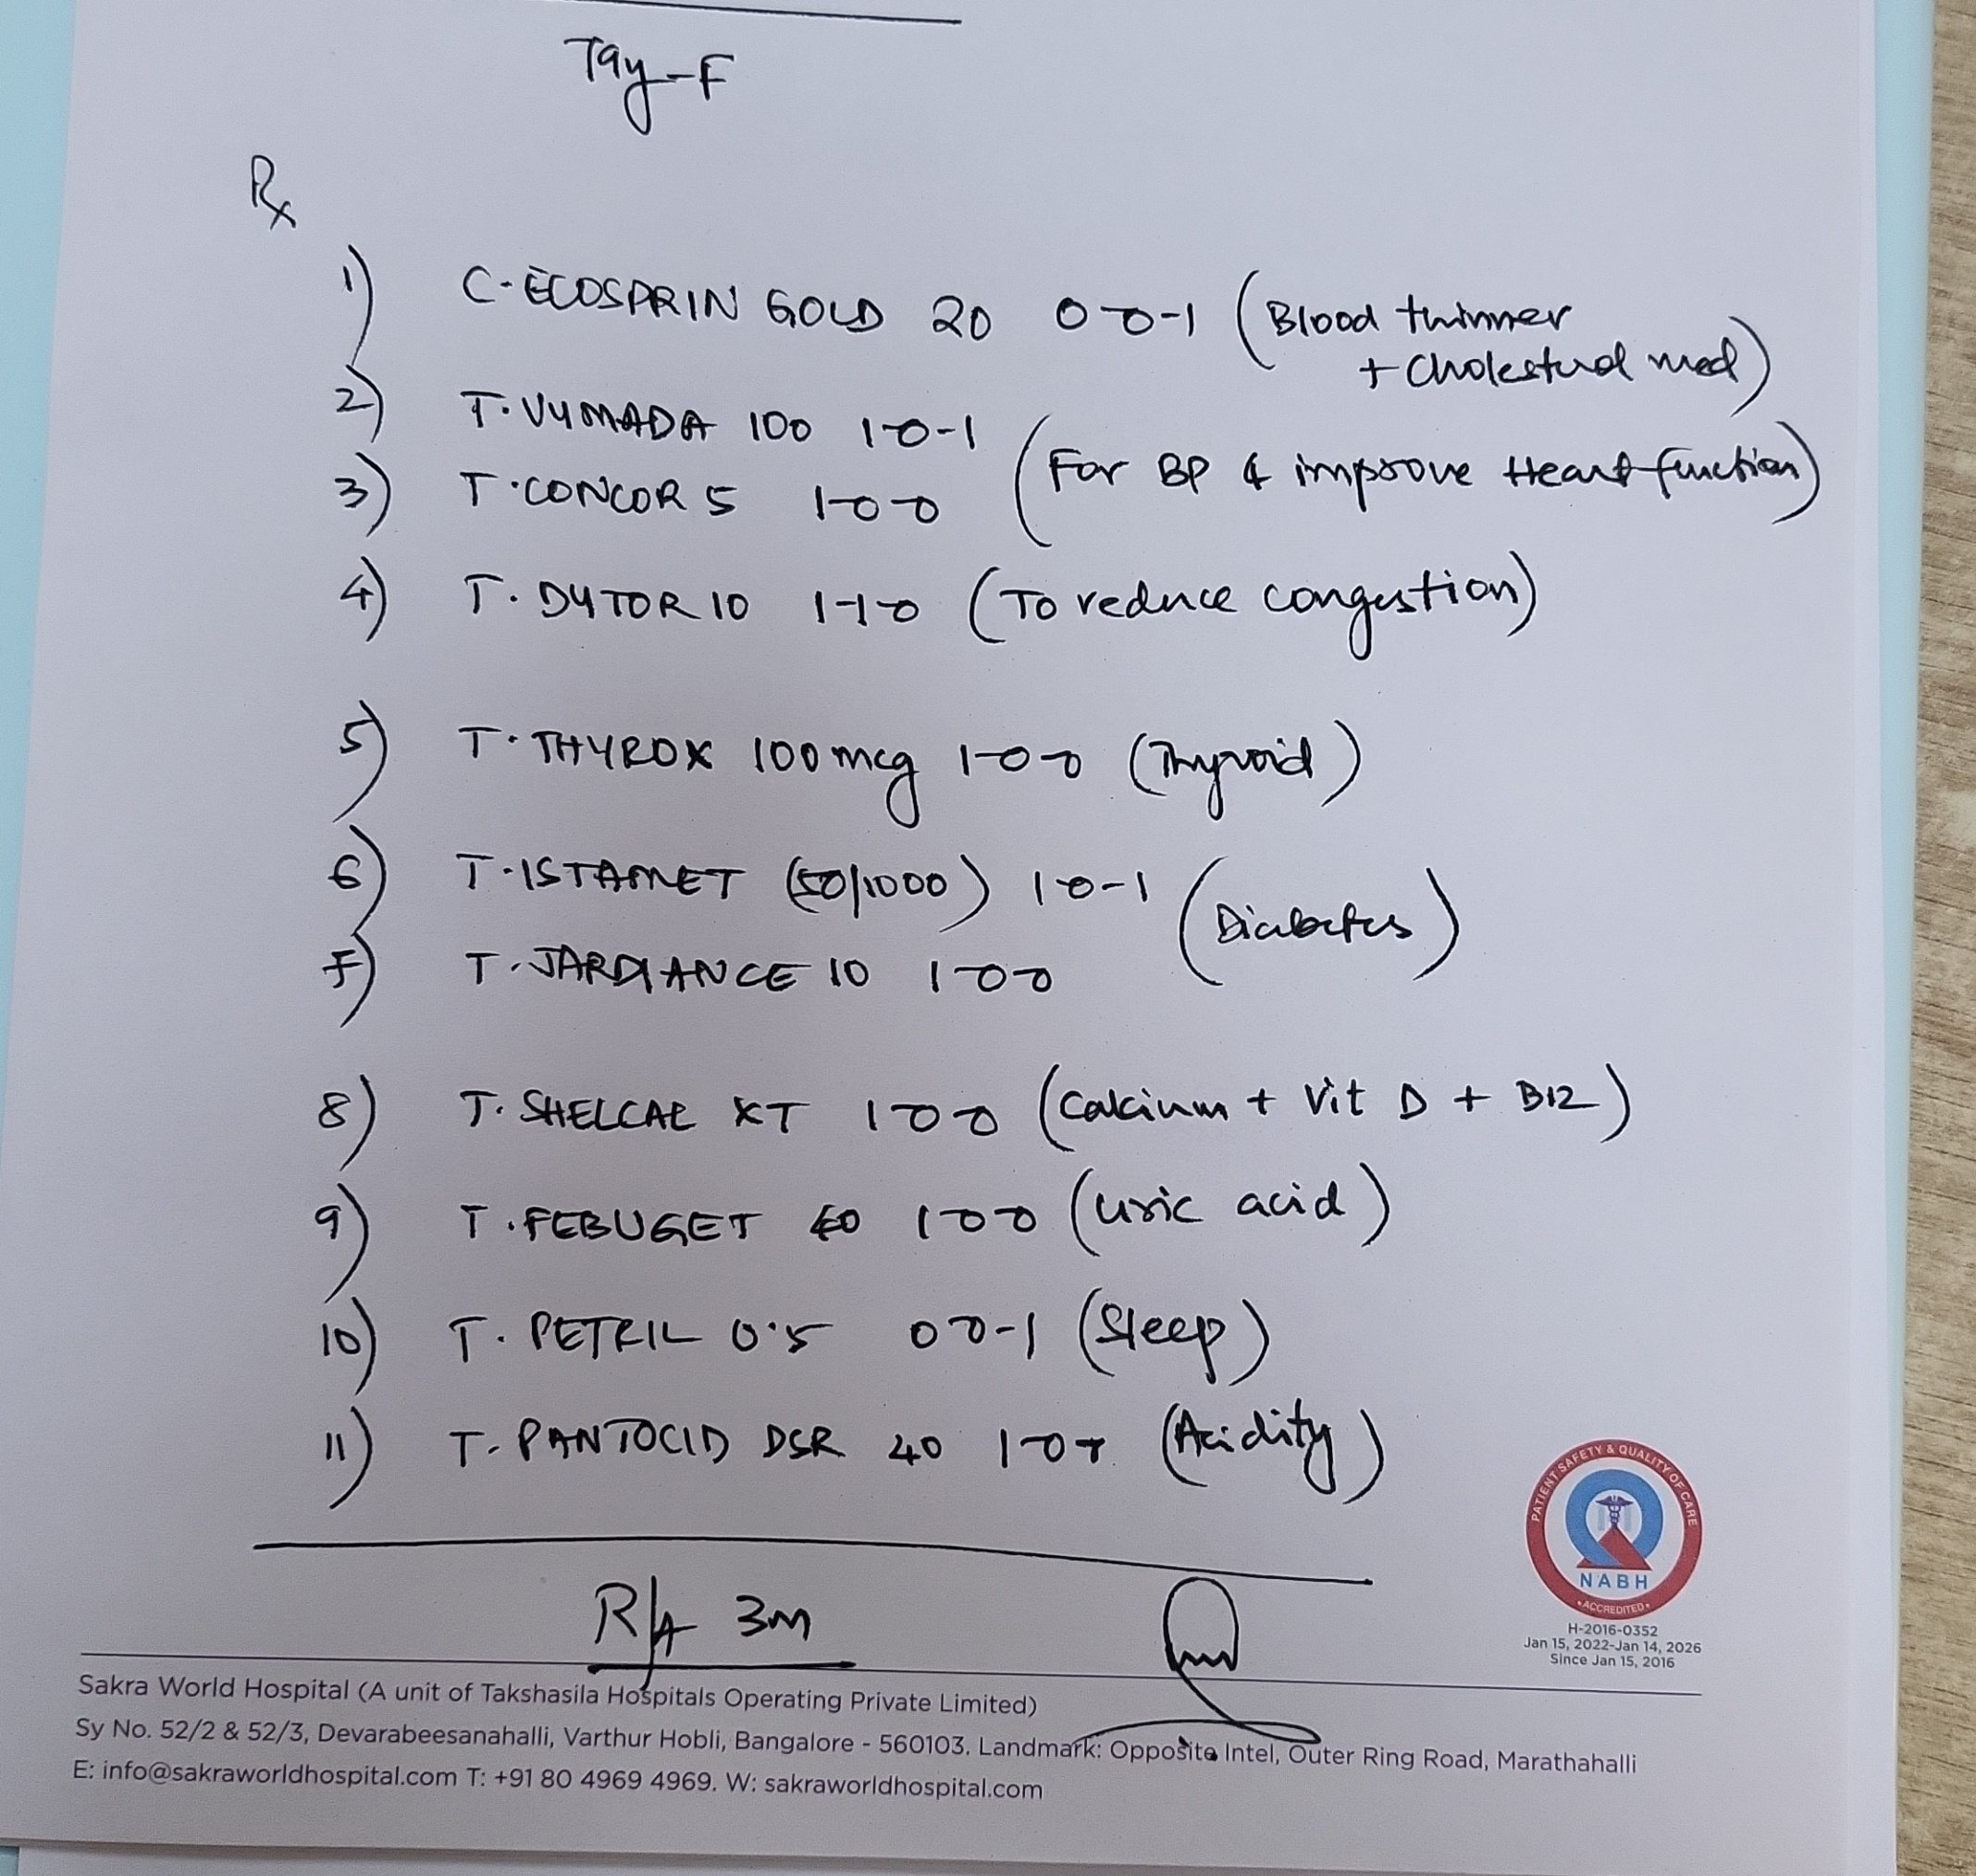 Tay-F
Rx
1) C-ECOSPRIN GOLD 20 0-0-1 (Blood thinner
+ Cholesterol med)
2) T. VYMADA 100 1-0-1
3) T. CONCOR 5 1-0-0 (For BP & improve Heart function)
4) T. DYTOR 10 1-1-0 (To reduce congestion)
5) T. THYROX 100 mcg 1-0-0 (Thyroid)
6) T. ISTAMET (50/1000) 1-0-1 (Diabetes)
7) T. JARDIANCE 10 1-0-0
8) T. SHELCAL XT 1-0-0 (Calcium + Vit D + B12)
9) T. FEBUGET 40 1-0-0 (Uric acid)
10) T. PETRIL 0.5 0-0-1 (Sleep)
11) T. PANTOCID DSR 40 (Acidity)
R/A 3m
PATIENT SAFETY & QUALITY OF CARE
NABH
• ACCREDITED •
H-2016-0352
Jan 15, 2022-Jan 14, 2026
Since Jan 15, 2016
Sakra World Hospital (A unit of Takshasila Hospitals Operating Private Limited)
Sy No. 52/2 & 52/3, Devarabeesanahalli, Varthur Hobli, Bangalore - 560103. Landmark: Opposite Intel, Outer Ring Road, Marathahalli
E: info@sakraworldhospital.com T: +91 80 4969 4969. W: sakraworldhospital.com